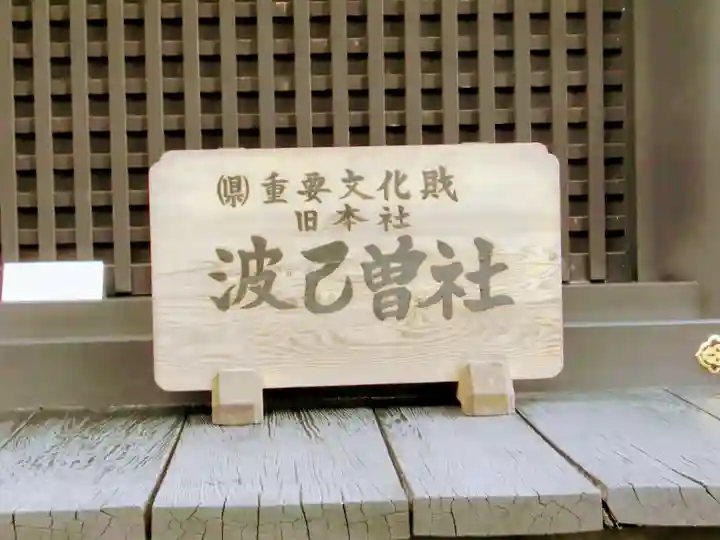 ㊩重要文化財
旧本社
波己曽社